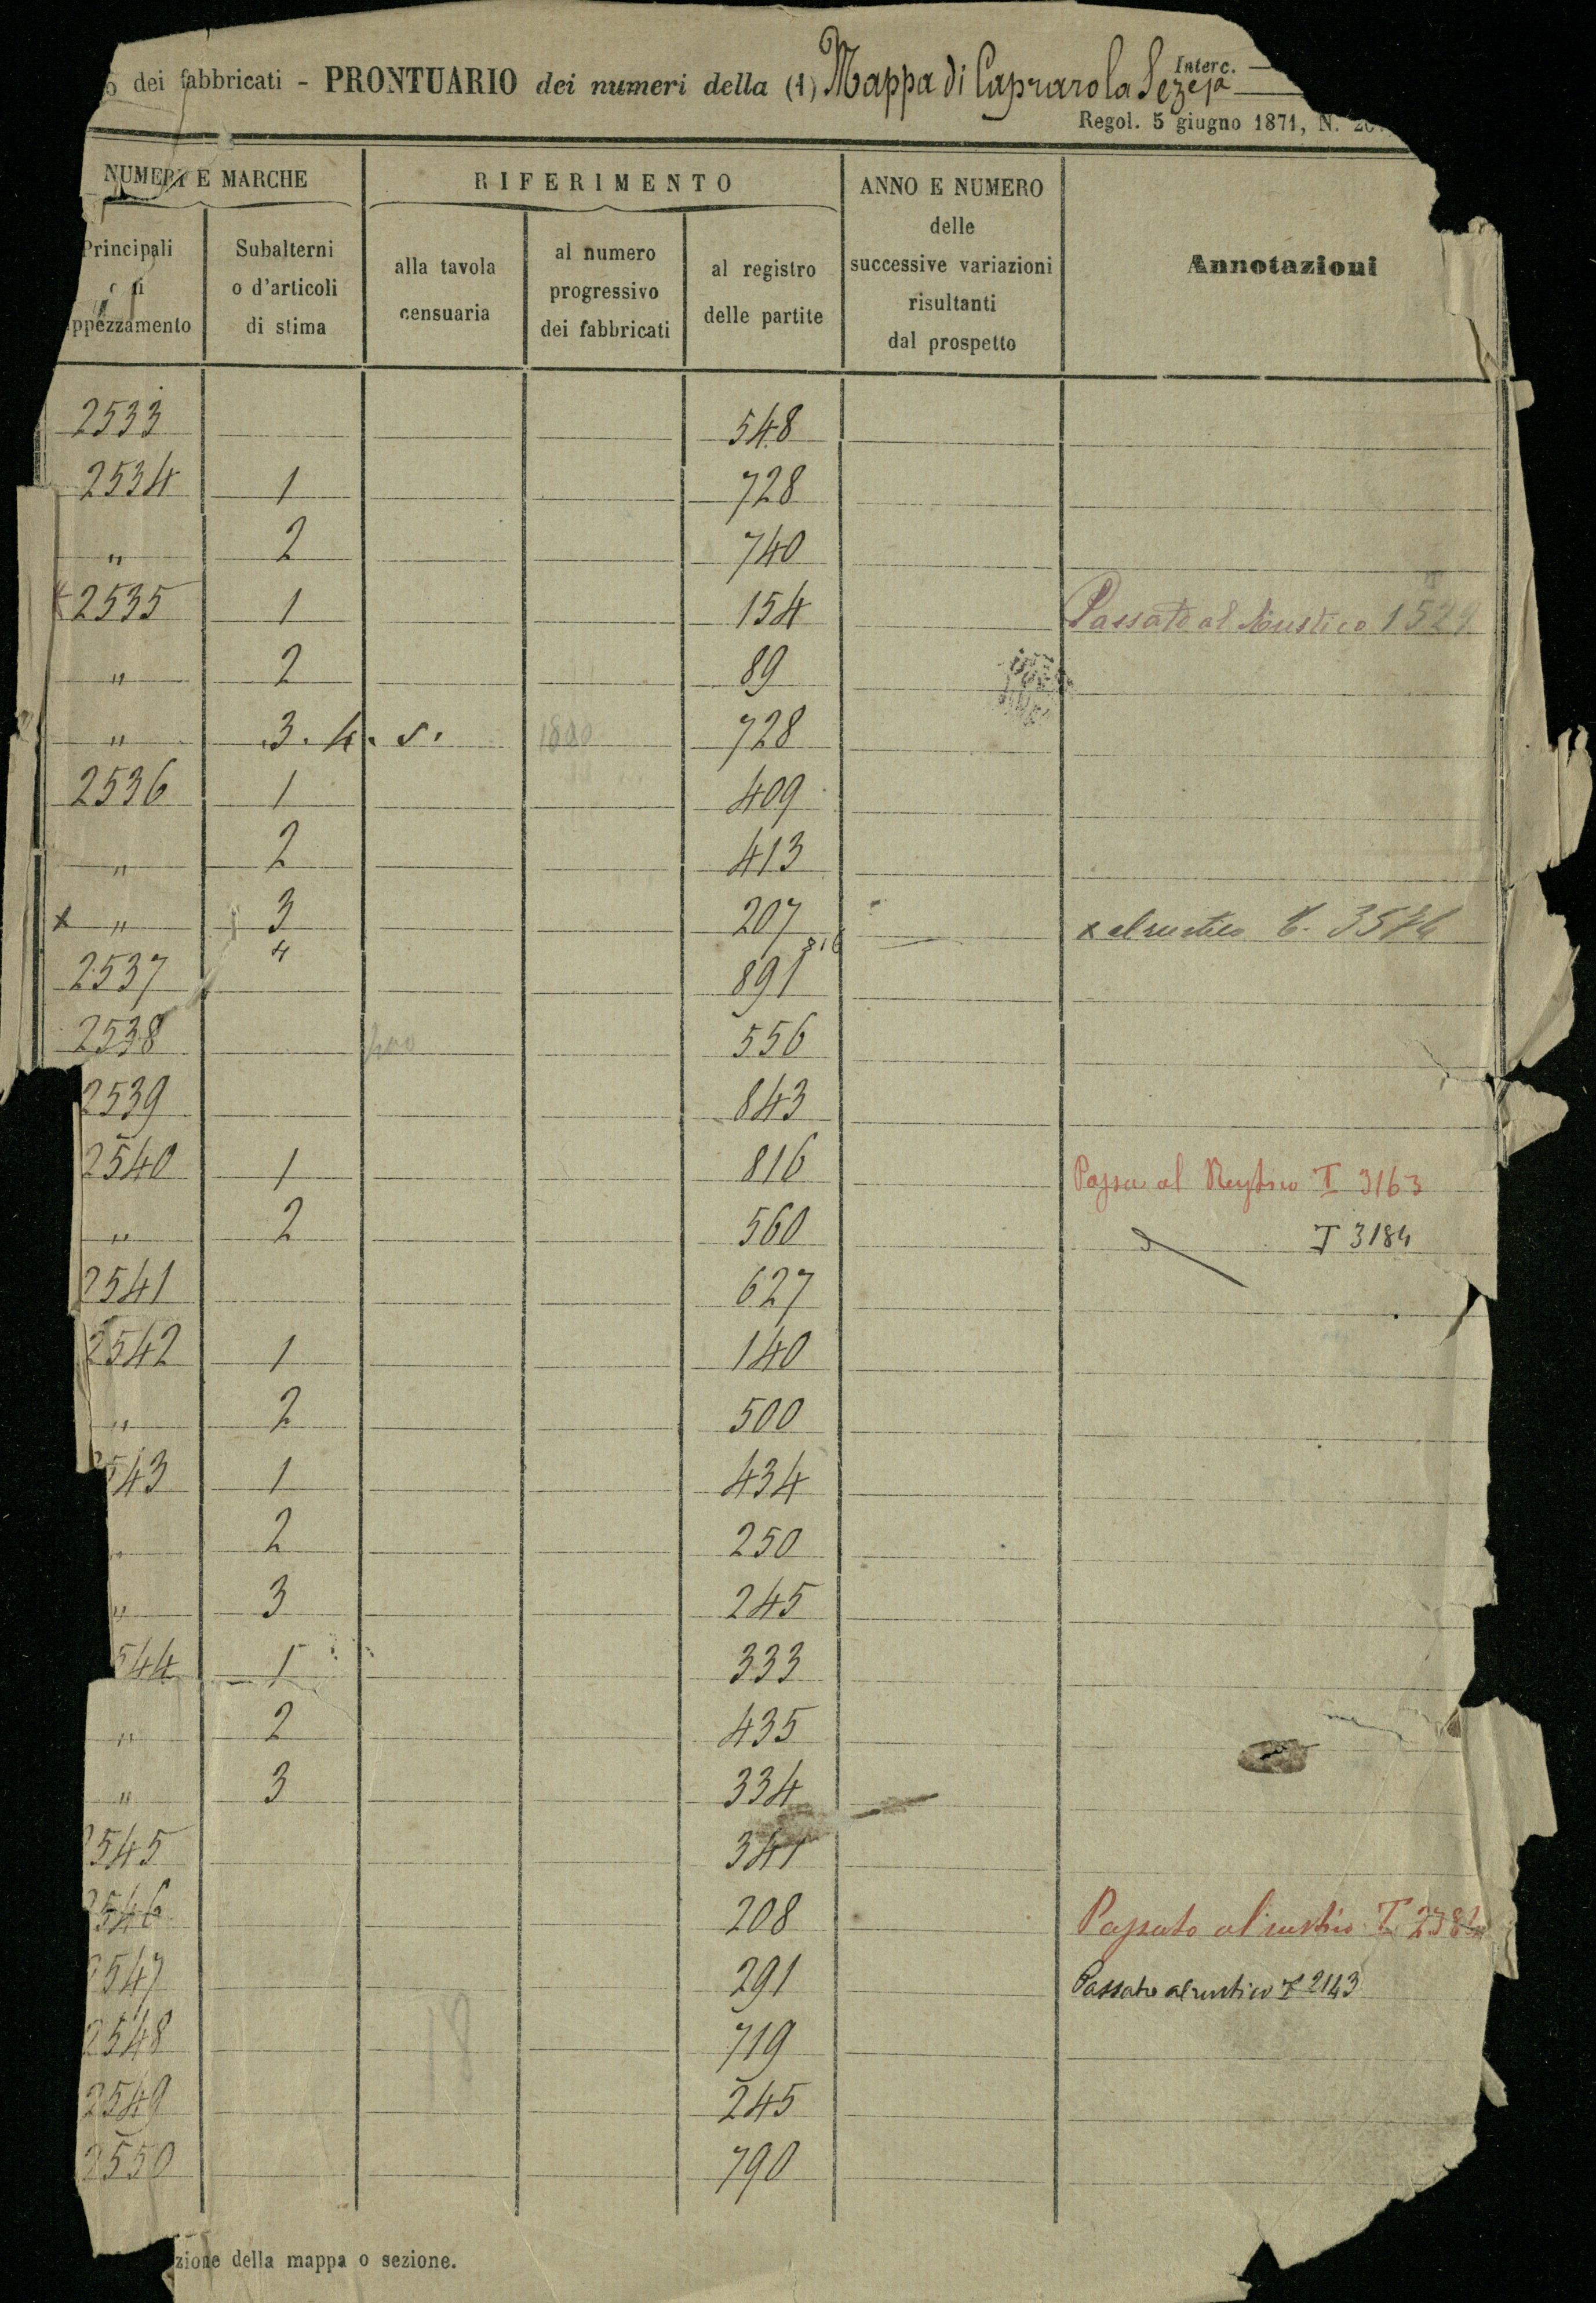 dei fabbricati - PRONTUARIO dei numeri della (1) Mappa di Caprarola Sez
Interc.
Regol. 5 giugno 1871, N.
NUMERI E MARCHE
RIFERIMENTO
ANNO E NUMERO
delle
successive variazioni
risultanti
dal prospetto
Annotazioni
Principali
ppezzamento
Subalterni
o d'articoli
di stima
alla tavola
censuaria
al numero
progressivo
dei fabbricati
al registro
delle partite
2533 548
2534 1 728
" 2 740
x 2535 1 154 Passato al Rustico 1529
" 2 89
" 3. 4. 5. 1880 728
2536 1 409
" 2 413
x " 3 207 x al rustico T.
4 816
2537 891
2538 556
2539 843
2540 1 816 Passa al Rustico T 3163
" 2 560 T 3184
2541 627
2542 1 140
" 2 500
543 1 434
" 2 250
" 3 245
544 1 333
" 2 435
" 3 334
2545 341
2546 208 Passato al rustico T
2547 291 Passato al rustico T 2143
2548 719
2549 245
2550 790
zione della mappa o sezione.